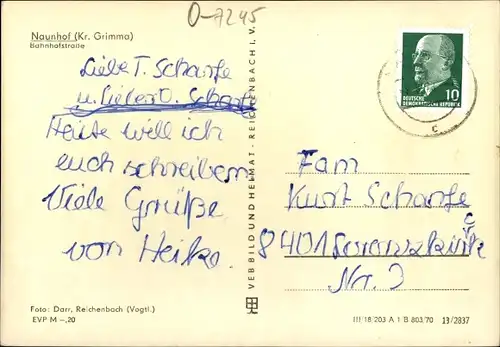 O-7245
Naunhof (Kr. Grimma)
Bahnhofstraße
Liebe T. Scharfe
u. Lieber O. Scharfe
Heute will ich
euch schreiben
Viele Grüße
von Heike.
VEB BILD UND HEIMAT · REICHENBACH I. V.
10
DEUTSCHE
DEMOKRATISCHE REPUBLIK
c
Fam
Kurt Scharfe
8401
Nr. 3
Foto: Darr, Reichenbach (Vogtl.)
EVP M –,20
III/18/203 A 1 B 803/70 13/2837